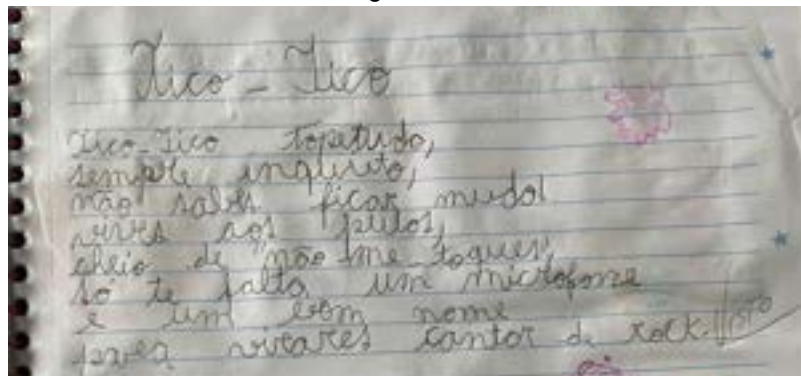 Tico-Tico
Tico-Tico topetudo,
sempre inquieto,
não sabes ficar mudo!
vives aos pulos,
cheio de "não me toques",
só te falta um microfone
e um bom nome
para virares cantor de rock.